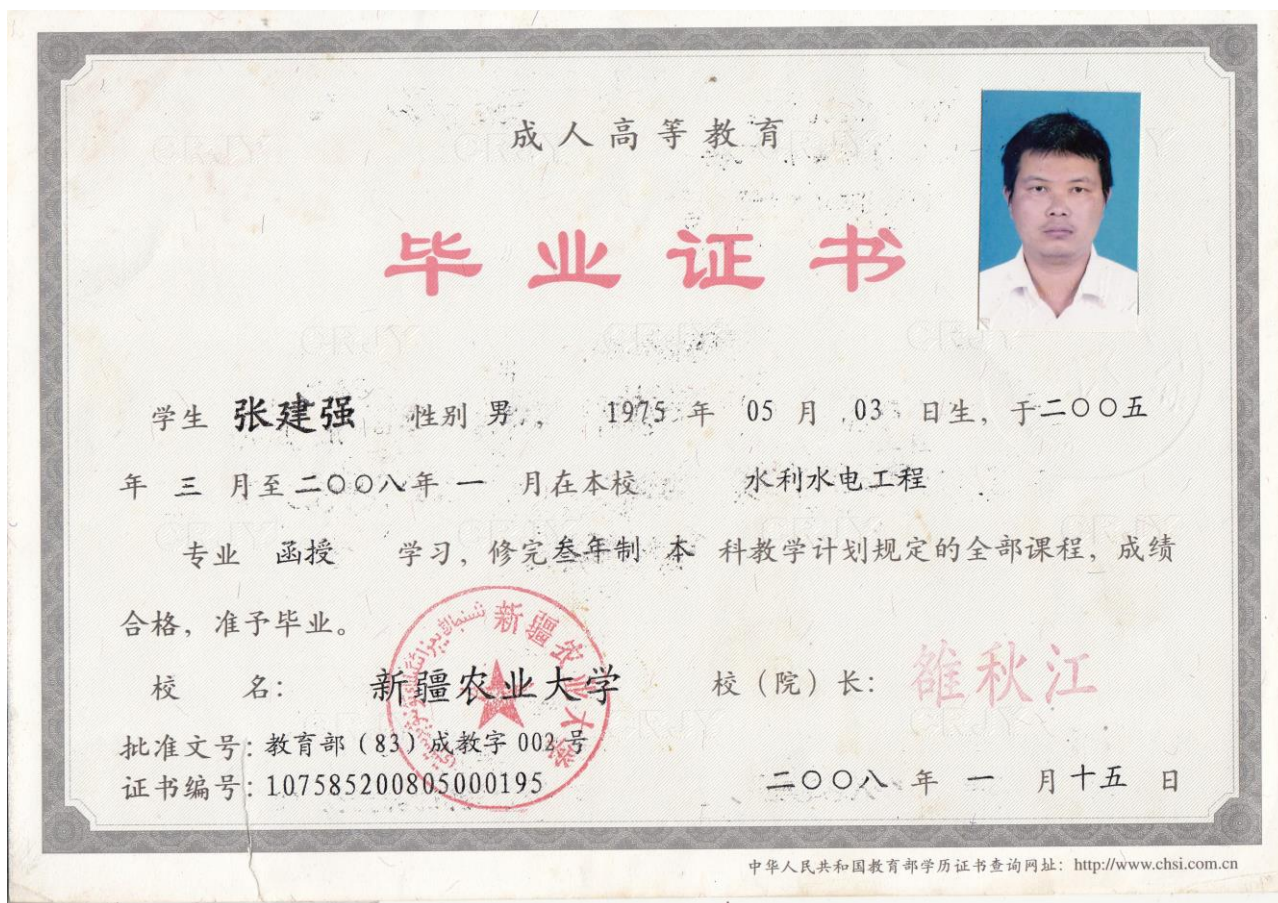 成人高等教育
毕业证书
学生 张建强 性别 男, 1975 年 05 月 03 日生, 于二〇〇五
年 三 月至二〇〇八年 一 月在本校 水利水电工程
专业 函授 学习, 修完叁年制 本 科教学计划规定的全部课程, 成绩
合格, 准予毕业。
新疆农业大学
校 名: 新疆农业大学 校（院）长: 雒秋江
批准文号: 教育部（83）成教字 002 号
证书编号: 107585200805000195 二〇〇八 年 一 月 十五 日
中华人民共和国教育部学历证书查询网址: http://www.chsi.com.cn